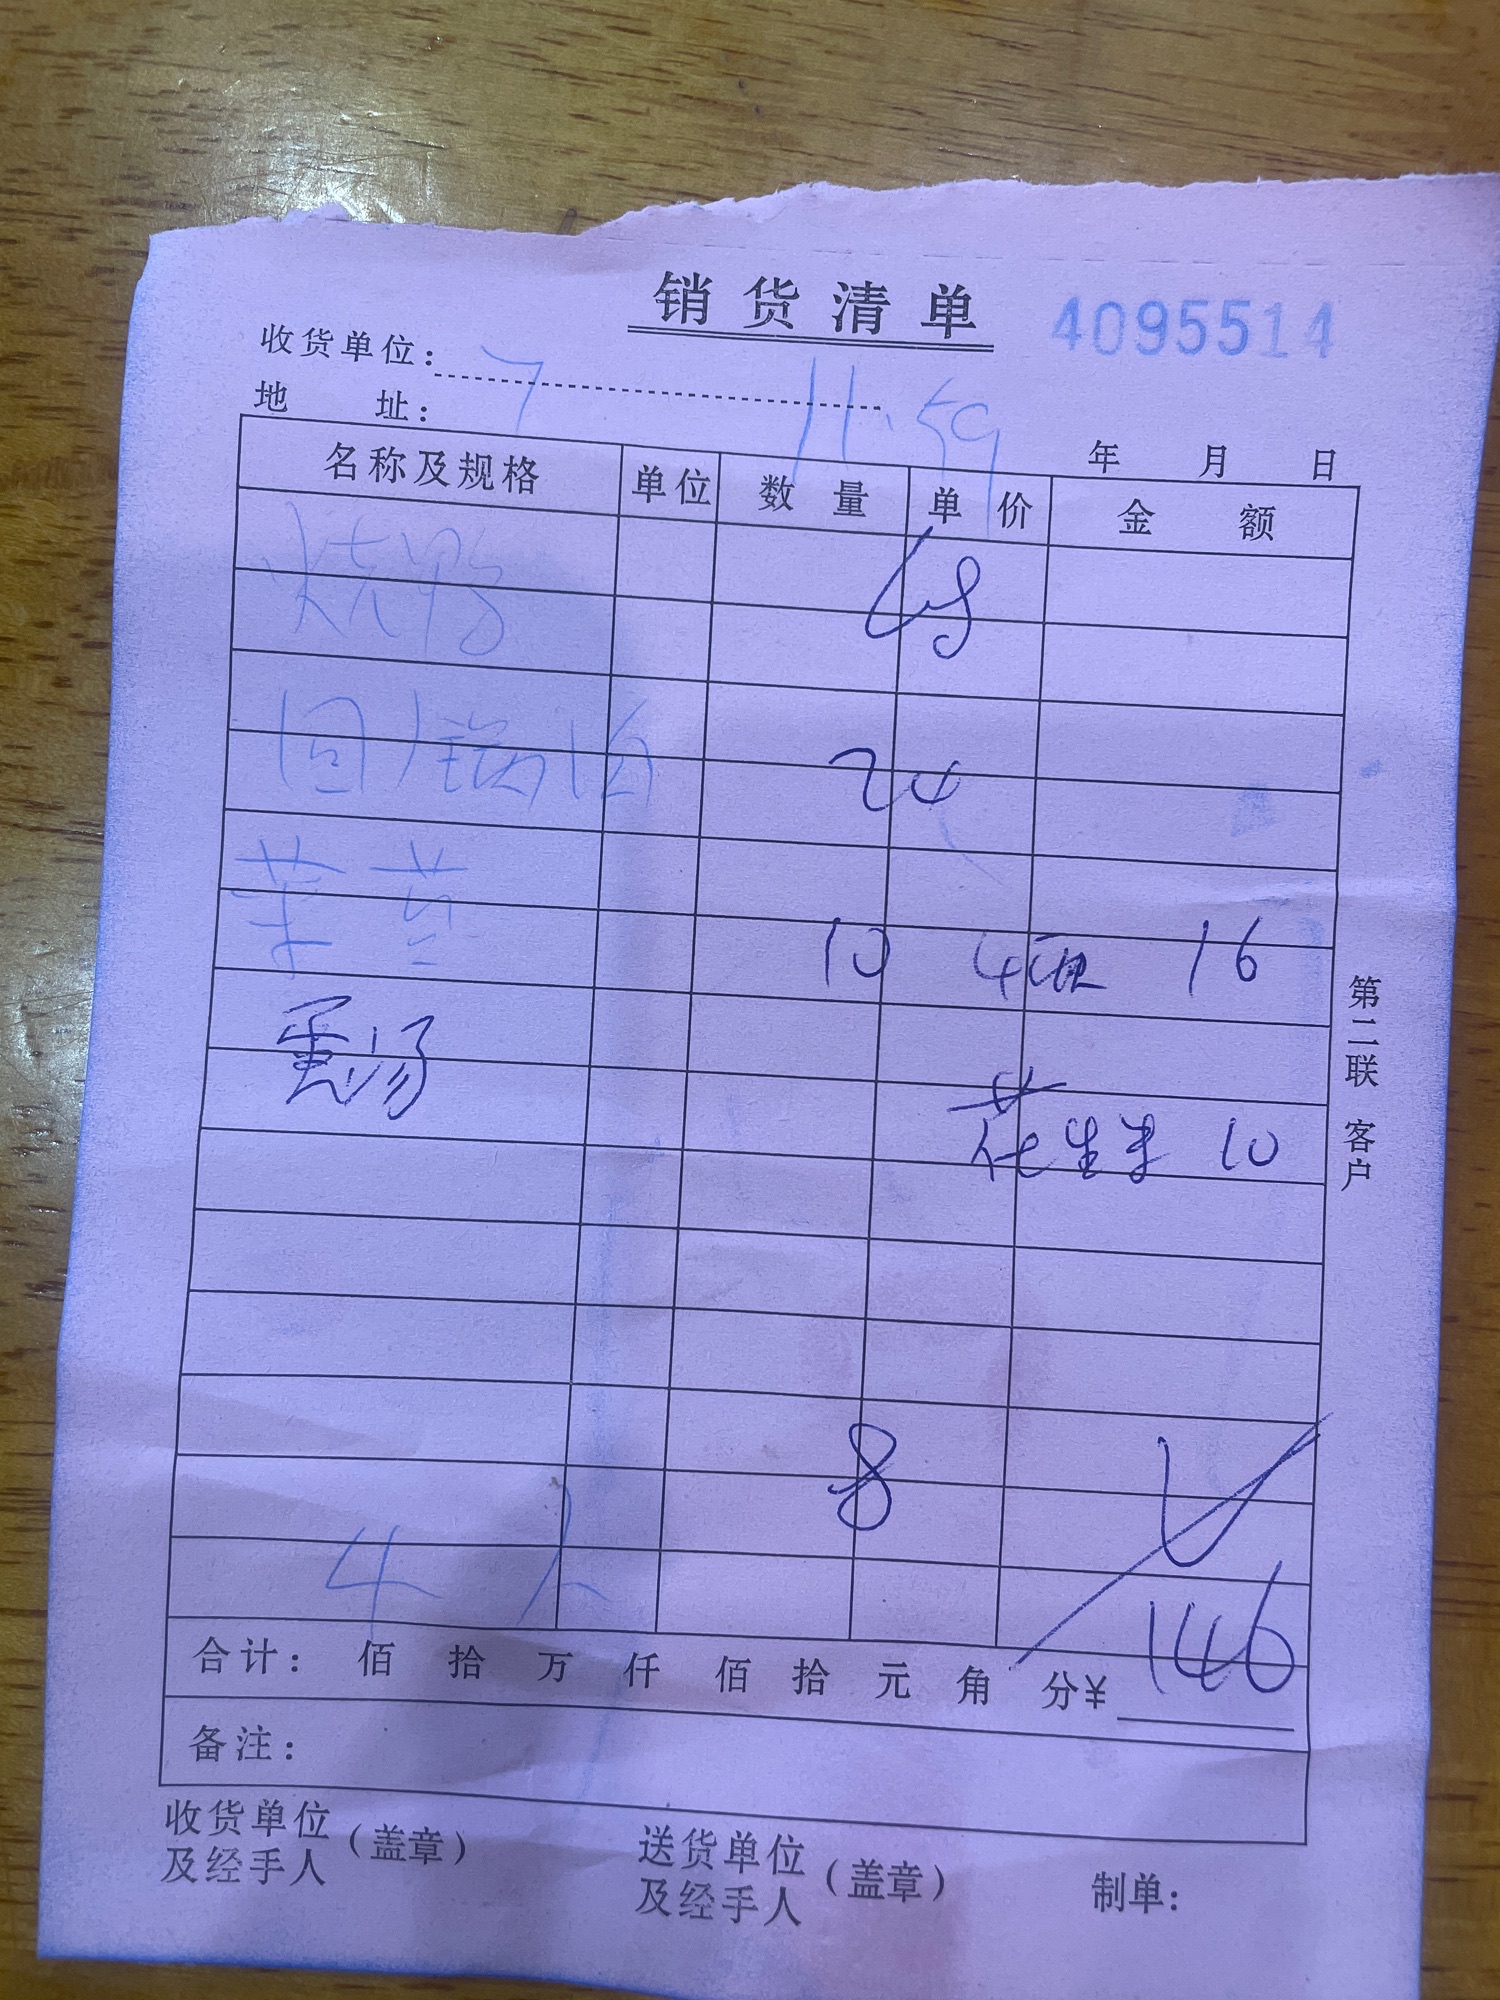 销货清单 4095514
收货单位: 7 11.59
地 址:
年 月 日
名称及规格 单位 数量 单价 金额
烧鸭 68
回锅肉 24
10 4瓶 16
蛋汤
花生米 10
8
4人
146
合计: 佰 拾 万 仟 佰 拾 元 角 分¥
备注:
收货单位
及经手人 (盖章)
送货单位
及经手人 (盖章)
制单:
第二联 客户